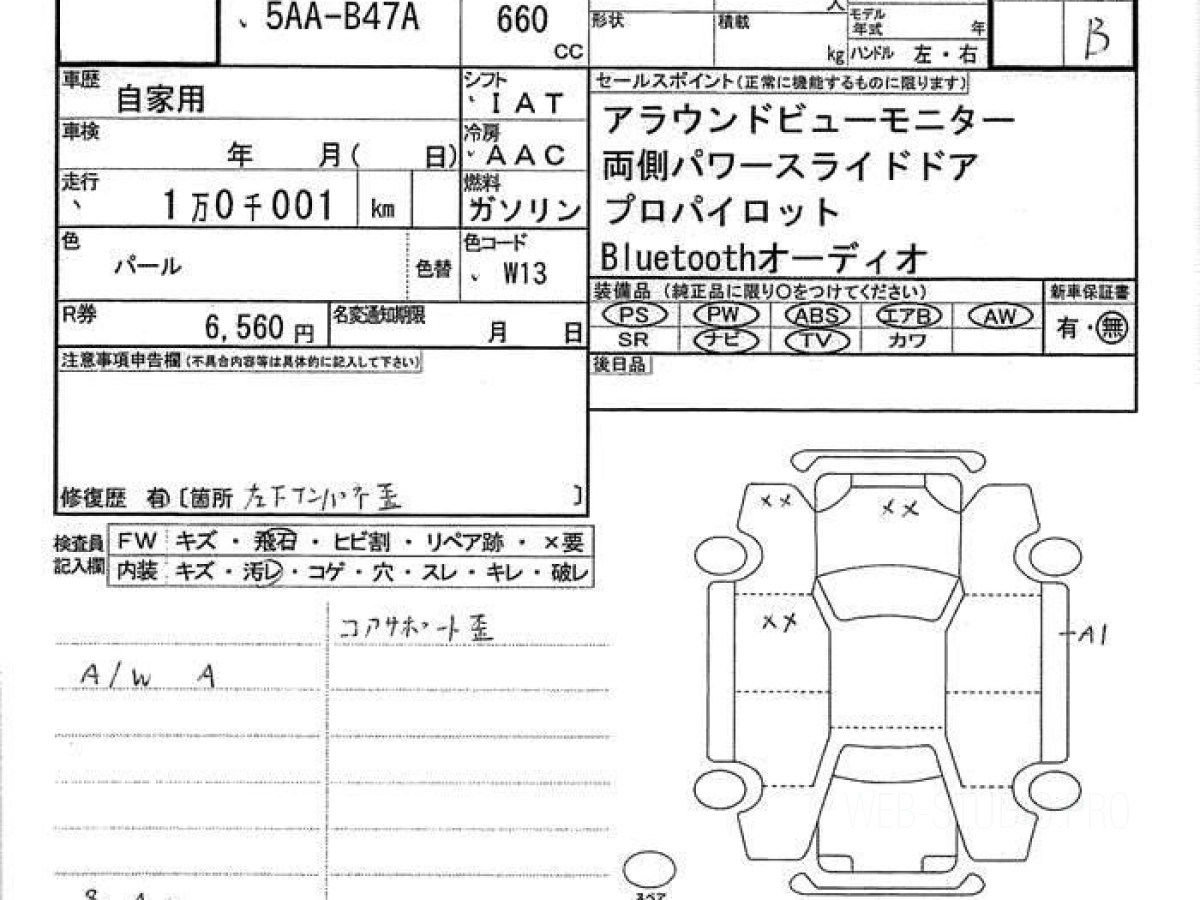 5AA-B47A
660
CC
形状
積載
人
kg
モデル
年式
年
ハンドル 左・右
B
車歴
自家用
シフト
IAT
セールスポイント(正常に機能するものに限ります)
アラウンドビューモニター
両側パワースライドドア
プロパイロット
Bluetoothオーディオ
車検
年 月( 日)
冷房
AAC
走行
1万0千001 km
燃料
ガソリン
色
パール
色替
色コード
W13
装備品(純正品に限り○をつけてください)
新車保証書
PS PW ABS エアB AW
有・無
SR ナビ TV カワ
R券
6,560 円
名変通知期限
月 日
注意事項申告欄(不具合内容等は具体的に記入して下さい)
後日品
修復歴 有〔箇所 左フインパネ歪 〕
検査員
記入欄
FW キズ・飛石・ヒビ割・リペア跡・×要
内装 キズ・汚レ・コゲ・穴・スレ・キレ・破レ
コアサポート歪
A/W A
XX
XX
XX
A1
WEB-STUDIO.PRO